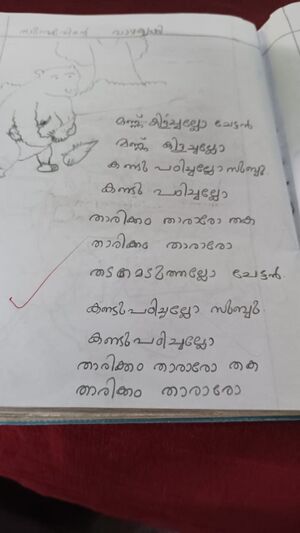 മണ്ണ് കിളച്ചല്ലോ ചേട്ടൻ
മണ്ണ് കിളച്ചല്ലോ
കണ്ടു പഠിച്ചല്ലോ
കണ്ടു പഠിച്ചല്ലോ
താരിക്കം താരാരോ തക
താരിക്കം താരാരോ
തടമെടുത്തല്ലോ ചേട്ടൻ
കണ്ടു പഠിച്ചല്ലോ
കണ്ടു പഠിച്ചല്ലോ
താരിക്കം താരാരോ തക
താരിക്കം താരാരോ